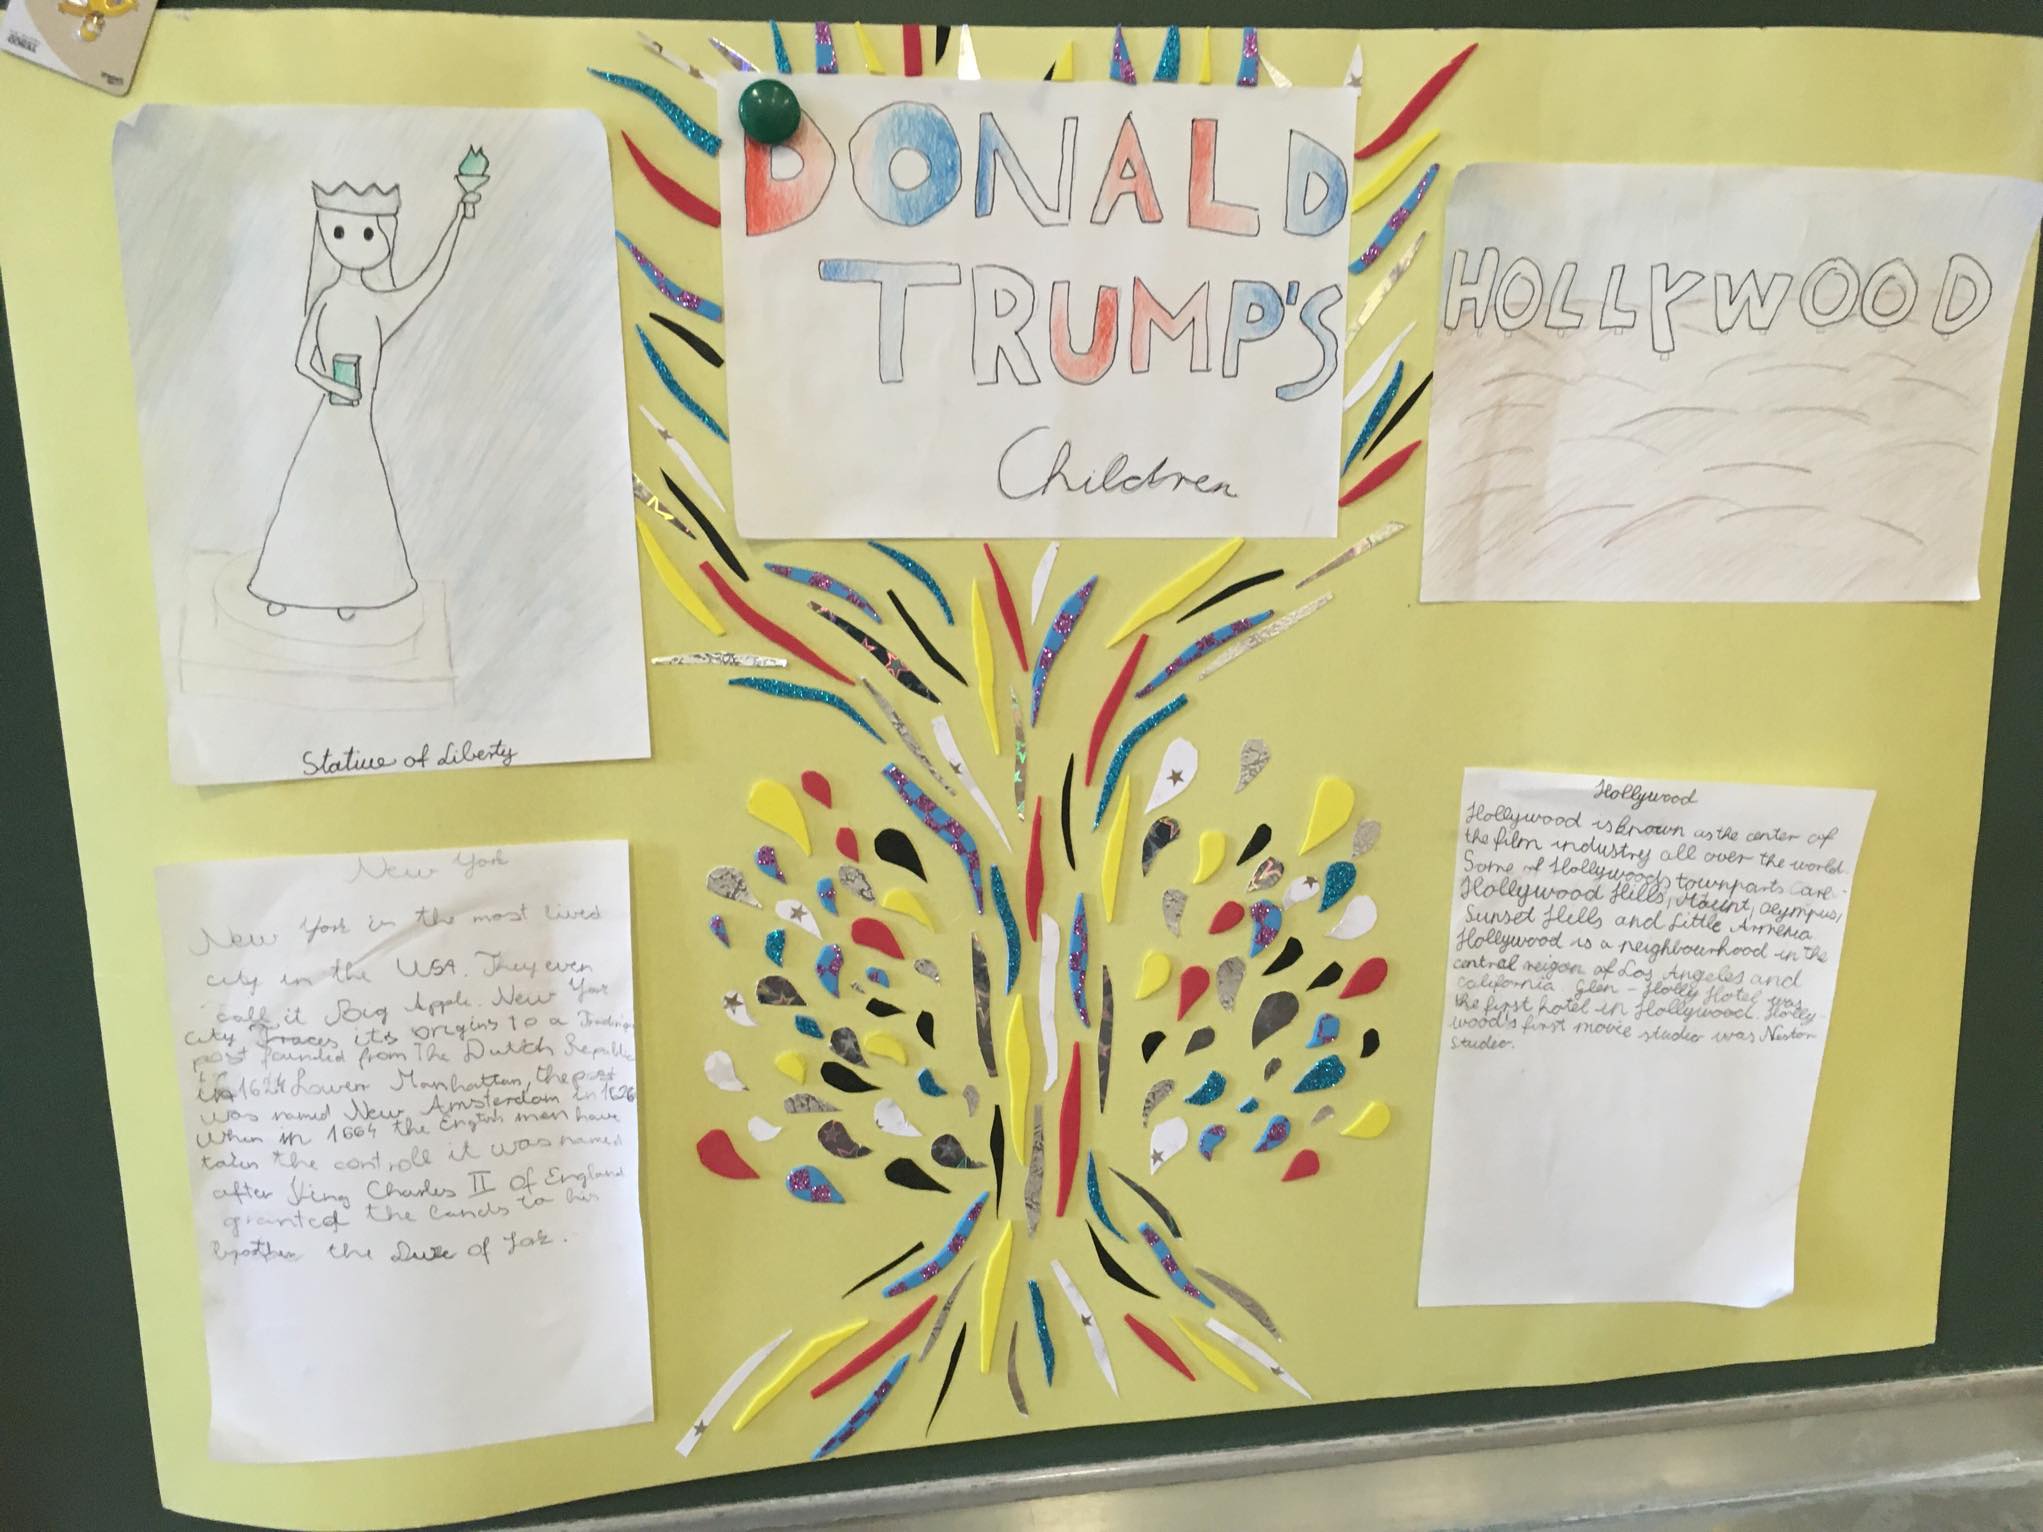 TESCO
DONALD
TRUMP'S
Children
HOLLYWOOD
Statiue of Liberty
New York
New York is the most lived
city in the USA. They even
call it Big Apple. New York
city Traces its origins to a Trading
post founded from The Dutch Republic
in 1624 Lower Manhattan, the post
was named New Amsterdam in 1626
When in 1664 the English men have
taken the controll it was named
after King Charles II of England
granted the lands to his
brother the Duke of York.
Hollywood
Hollywood is known as the center of
the film industry all over the world.
Some of Hollywoods townparts are-
Hollywood Hills, Mount, Olympus,
Sunset Hills and Little Armenia
Hollywood is a neighbourhood in the
central reigon of Los Angeles and
california. Glen - Holly Hotel was
the first hotel in Hollywood. Holly-
wood's first movie studio was Nestor
Studio.